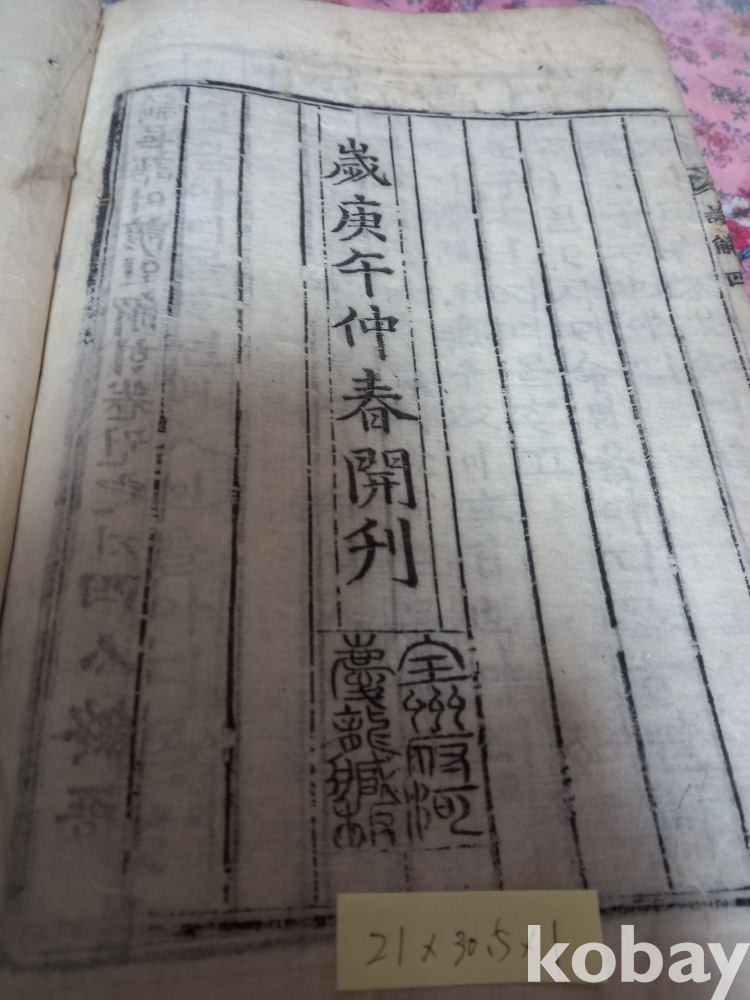 歲庚午仲春開刊
全州府河
慶龍藏板
解四
21 x 30.5 x 1
kobay